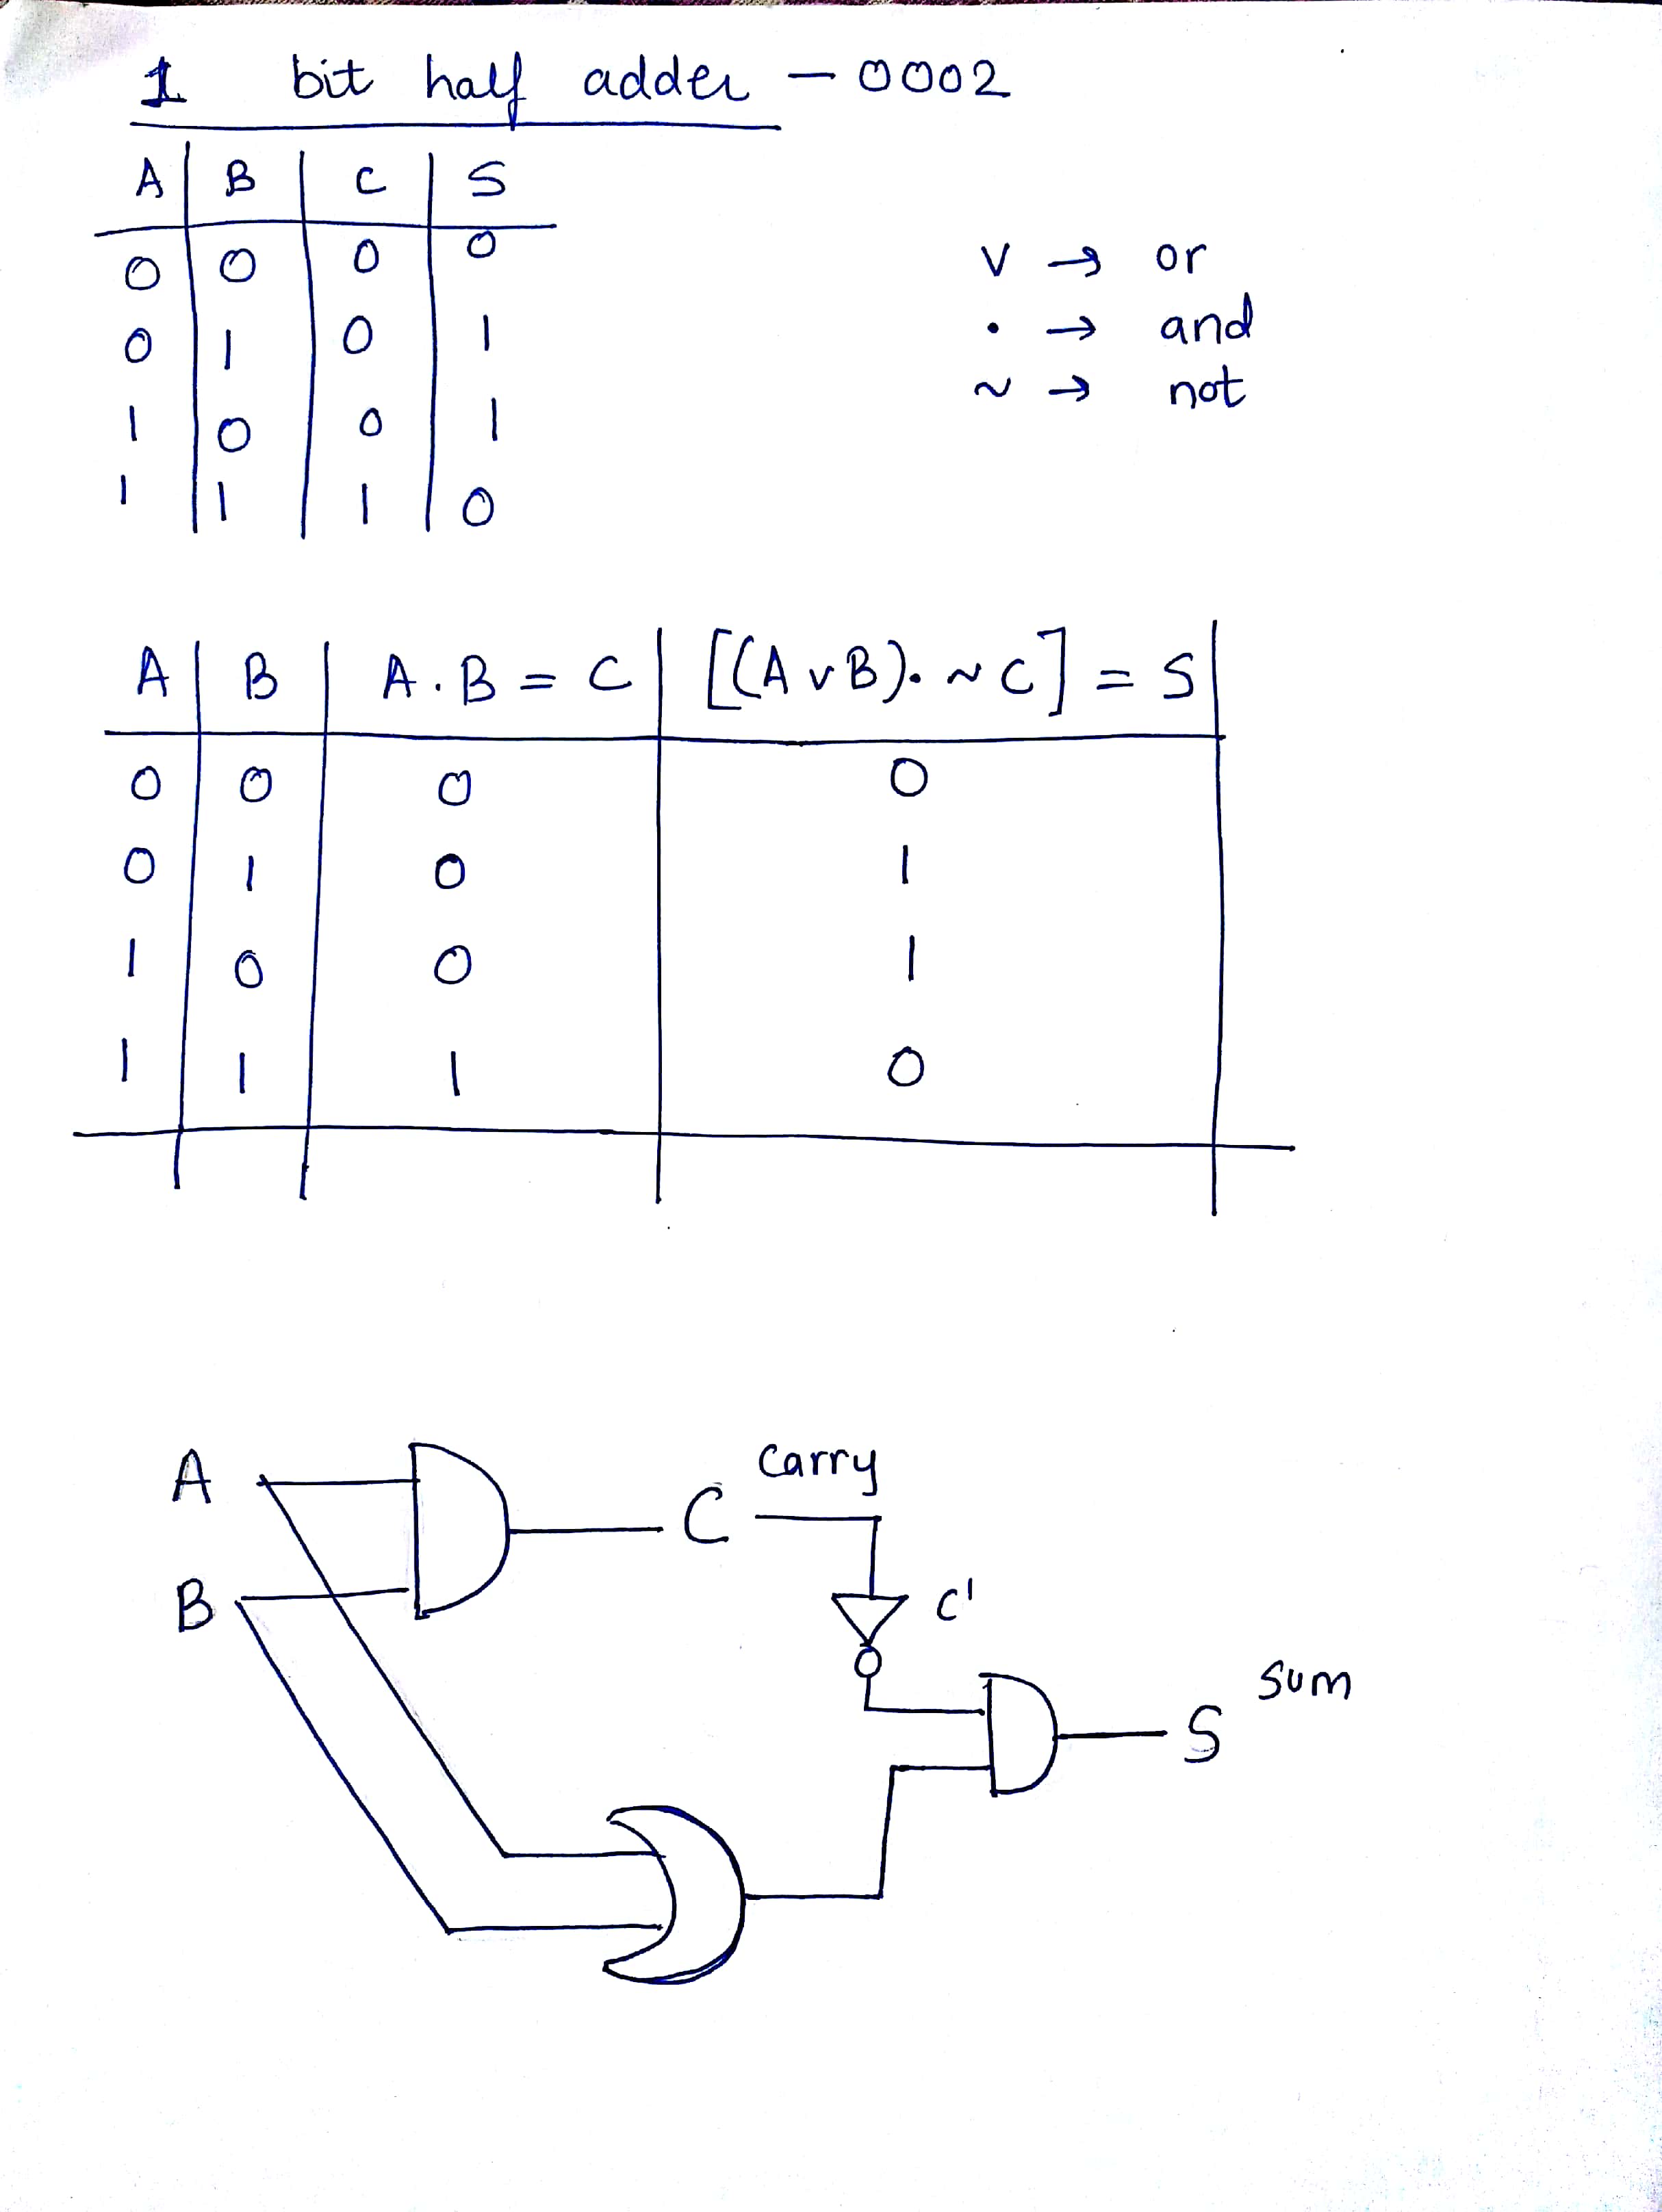 1 bit half adder – 0002
A B C S
0 0 0 0
0 1 0 1
1 0 0 1
1 1 1 0
v → or
. → and
~ → not
A B A.B = C [(A v B). ~ C] = S
0 0 0 0
0 1 0 1
1 0 0 1
1 1 1 0
A
B
C carry
C'
S sum